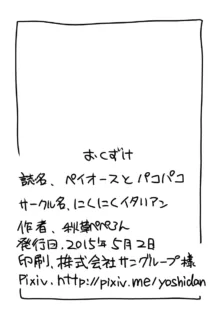 おくずけ
誌名、ペイオースとパコパコ
サークル名、にくにくイタリアン
作者、利葉ぺぺろん
発行日.2015年5月2日
印刷、株式会社サングループ様
Pixiv、http://pixiv.me/yoshidan